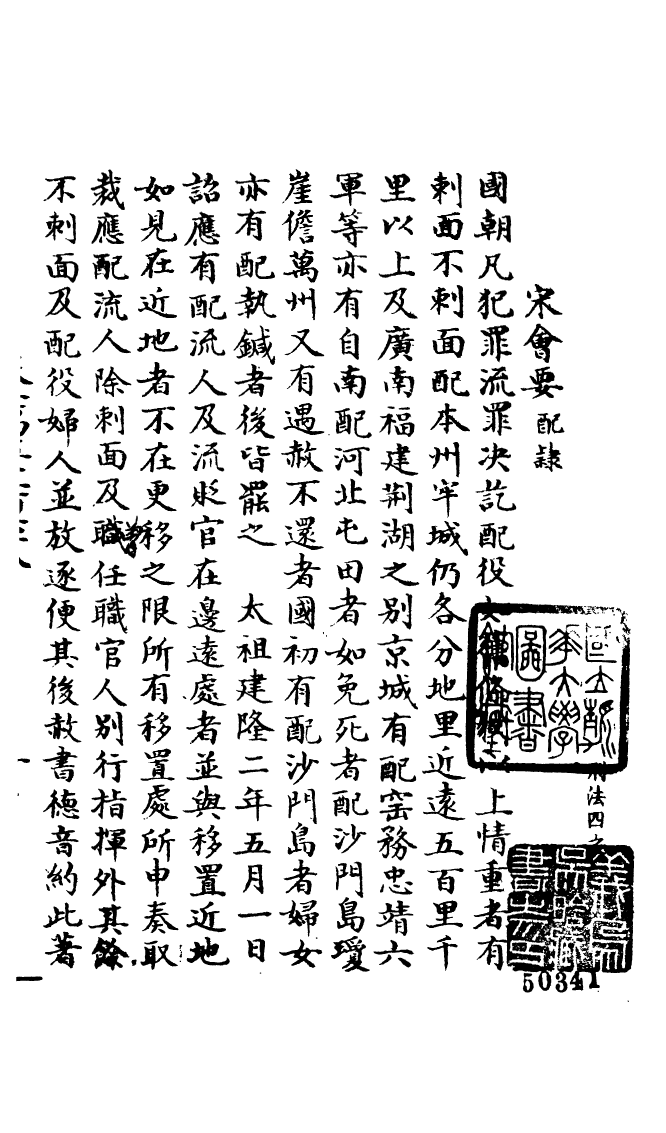 刑法四之
宋會要 配隸
國朝凡犯罪流罪决訖配役上情重者有
刺面不刺面配本州牢城仍各分地里近遠五百里千
里以上及廣南福建荆湖之别京城有配窑務忠靖六
軍等亦有自南配河北屯田者如免死者配沙門島瓊
崖儋萬州又有遇赦不還者國初有配沙門島者婦女
亦有配執鍼者後皆罷之 太祖建隆二年五月一日
詔應有配流人及流貶官在邊遠處者並與移置近地
如見在近地者不在更移之限所有移置處所申奏取
裁應配流人除刺面及曾任職官人别行指揮外其餘
不刺面及配役婦人並放逐便其後赦書德音約此著
國立北平圖書館收藏
一
50341